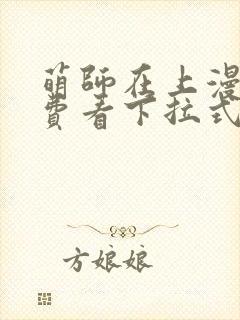 萌師在上漫
費看下拉式
方娘娘